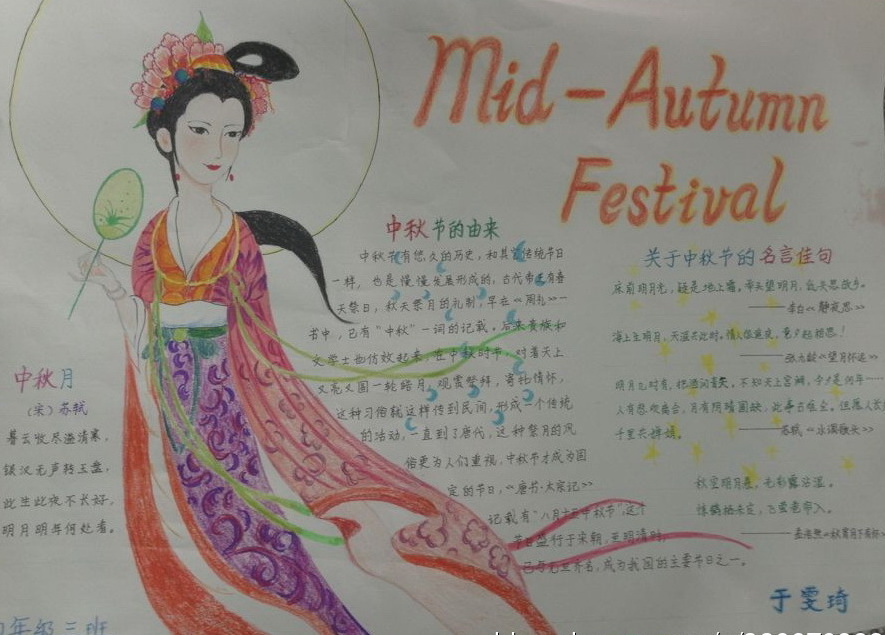 Mid-Autumn
Festival
中秋节的由来
中秋节有悠久的历史，和其它传统节日
一样，也是慢慢发展形成的，古代帝王有春
天祭日，秋天祭月的礼制，早在《周礼》一
书中，已有“中秋”一词的记载。后来贵族和
文学士也仿效起来，在中秋时节，对着天上
又亮又圆一轮皓月，观赏祭拜，寄托情怀，
这种习俗就这样传到民间，形成一个传统
的活动，一直到了唐代，这种祭月的风
俗更为人们重视，中秋节才成为固
定的节日，《唐书·太宗记》
记载有“八月十五中秋节”，这个
节日盛行于宋朝，至明清时，
已与元旦齐名，成为我国的主要节日之一。
关于中秋节的名言佳句
床前明月光，疑是地上霜。举头望明月，低头思故乡。
——李白《静夜思》
海上生明月，天涯共此时。情人怨遥夜，竟夕起相思！
——张九龄《望月怀远》
明月几时有，把酒问青天。不知天上宫阙，今夕是何年……
人有悲欢离合，月有阴晴圆缺，此事古难全。但愿人长
千里共婵娟。——苏轼《水调歌头》
秋空明月悬，光彩露沾湿。
惊鹊栖未定，飞萤卷帘入。
——孟浩然《秋宵月下有怀》
中秋月
（宋）苏轼
暮云收尽溢清寒，
银汉无声转玉盘，
此生此夜不长好，
明月明年何处看。
年级三班
于雯琦